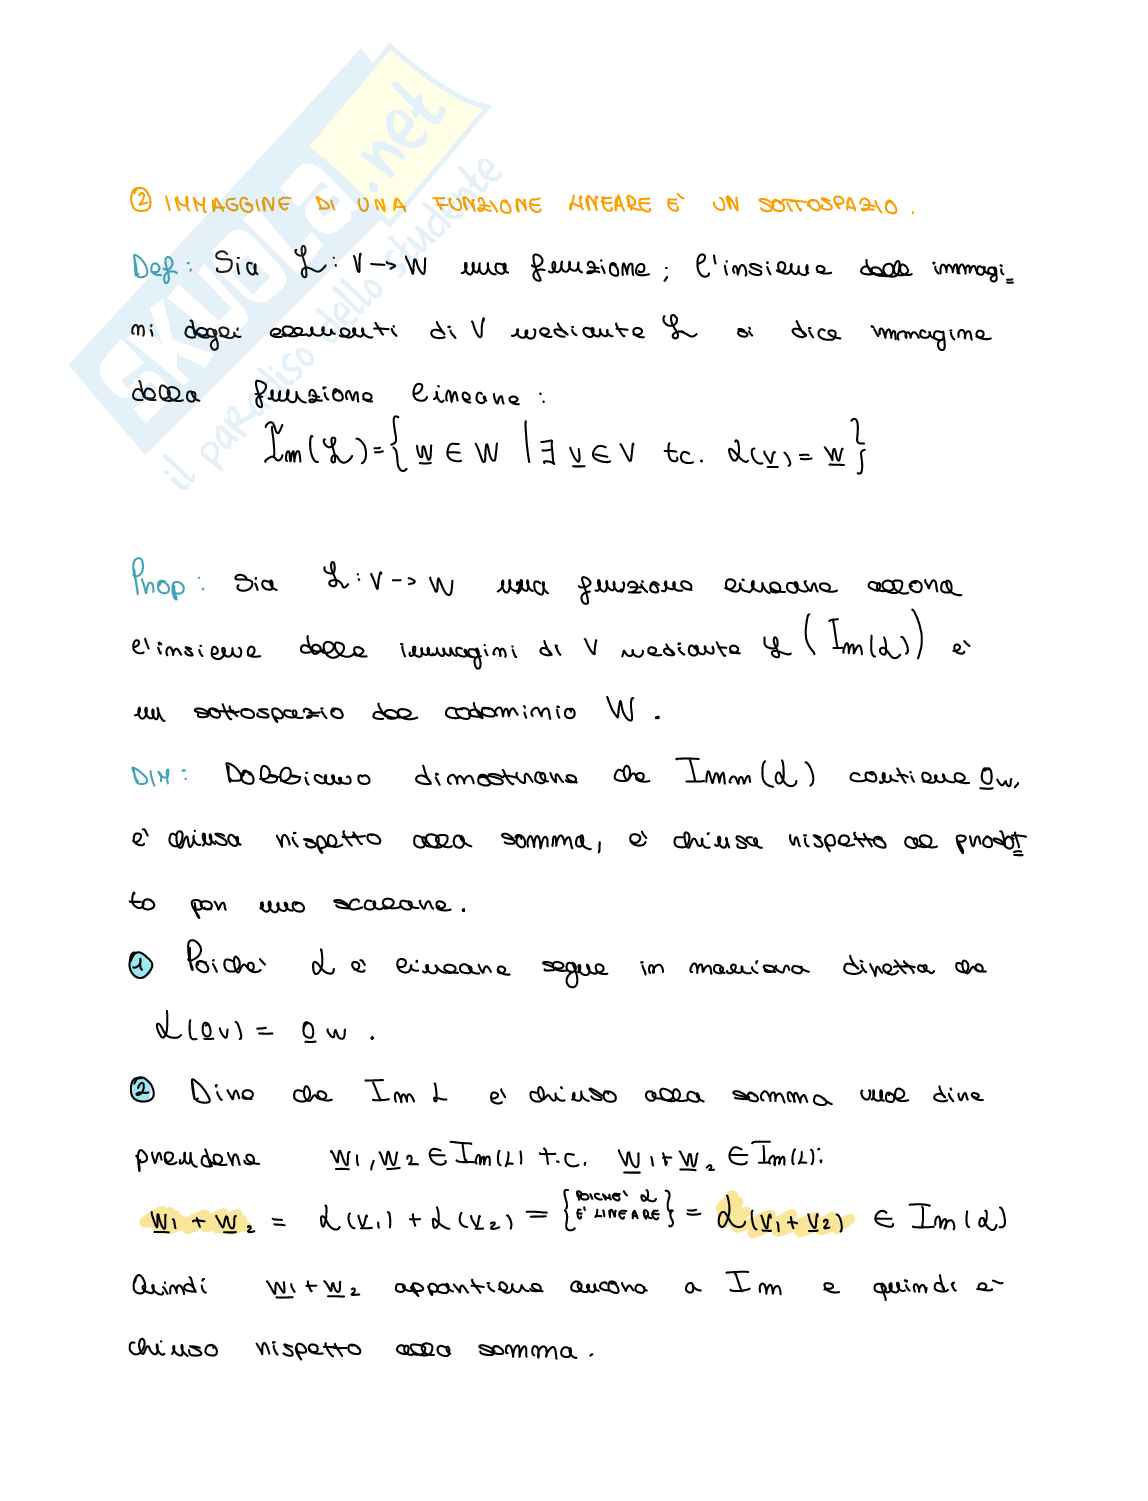 SKUOLA.net
il paradiso dello studente
② IMMAGINE DI UNA FUNZIONE LINEARE E' UN SOTTOSPAZIO.
Def: Sia L: V→W una funzione; l'insieme delle immagi-
ni degli elementi di V mediante L si dice immagine
della funzione lineare:
Im(L)={w ∈ W | ∃ v ∈ V tc. L(v) = w}
Prop: Sia L: V -> W una funzione lineare allora
l'insieme delle immagini di V mediante L (Im(L)) e'
un sottospazio del codominio W.
DIM: Dobbiamo dimostrare che Imm(L) contiene 0w,
e' chiusa rispetto alla somma, e' chiusa rispetto al prodot
to per uno scalare.
1 Poiche' L e' lineare segue in maniera diretta che
L(0v) = 0w.
2 Dire che Im L e' chiuso alla somma vuol dire
prendere w1, w2 ∈ Im(L) t.c. w1+w2 ∈ Im(L):
w1 + w2 = L(v1) + L(v2) = {POICHE' L E' LINEARE} = L(v1 + v2) ∈ Im(L)
Quindi w1 + w2 appartiene ancora a Im e quindi e'
chiuso rispetto alla somma.